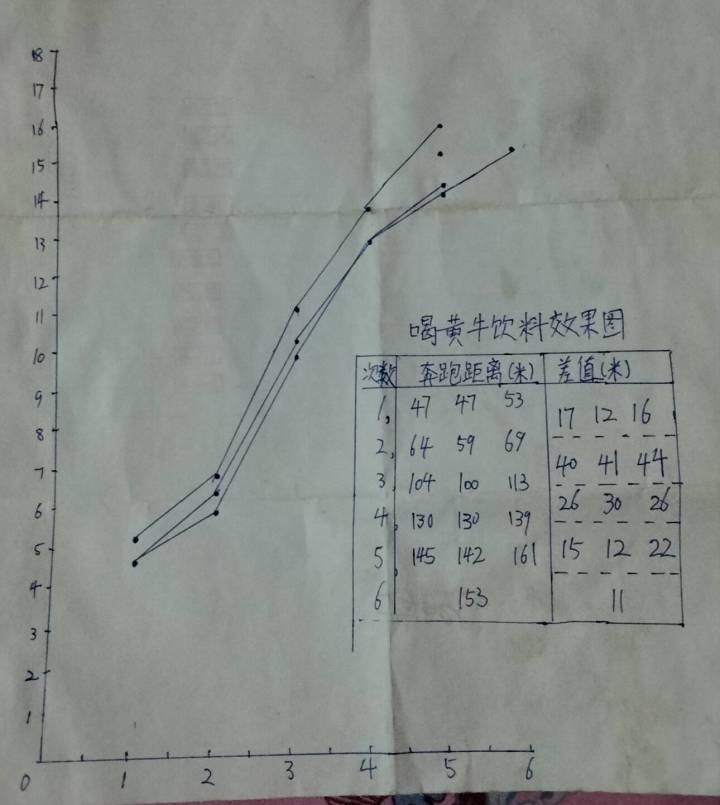 18
17
16
15
14
13
12
11
10
9
8
7
6
5
4
3
2
1
0 1 2 3 4 5 6
喝黄牛饮料效果图
次数 奔跑距离(米) 差值(米)
1, 47 47 53
17 12 16
2, 64 59 69
40 41 44
3, 104 100 113
26 30 26
4, 130 130 139
15 12 22
5, 145 142 161
6 153 11